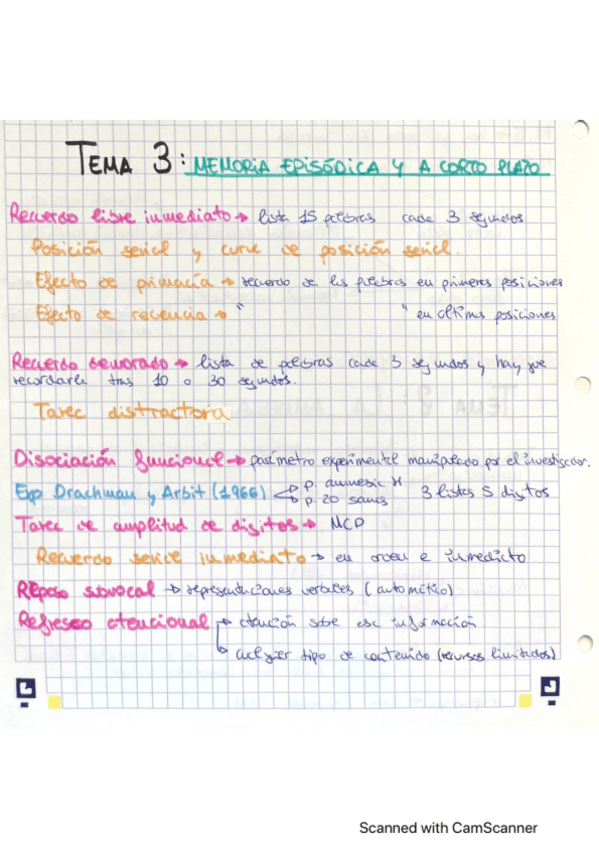 TEMA 3: MEMORIA EPISÓDICA Y A CORTO PLAZO
Recuerdo libre inmediato → lista 15 palabras cada 3 segundos
Posición serial y curva de posición serial.
Efecto de primacía → recuerdo de las palabras en primeras posiciones
Efecto de recencia → " " en últimas posiciones
Recuerdo demorado → lista de palabras cada 3 segundos y hay que
recordarla tras 10 o 30 segundos.
Tarea distractora
Disociación funcional → parámetro experimental manipulado por el investigador.
Exp Drachman y Arbit (1966) p. amnesic H 3 listas 5 dígitos
p. 20 sanos
Tarea de amplitud de dígitos → MCP
Recuerdo serial inmediato → en orden e inmediato
Repaso subvocal → representaciones verbales (automático)
Refresco atencional → atención sobre esa información
→ cualquier tipo de contenido (recursos limitados)
Scanned with CamScanner